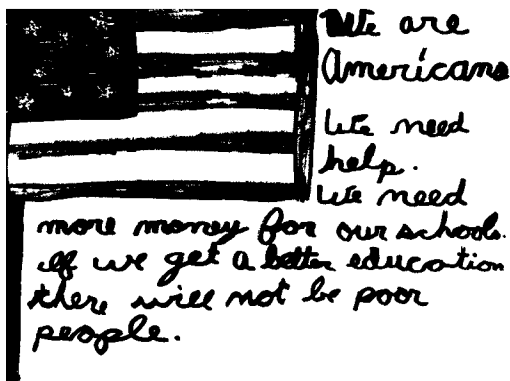 We are
Americans
We need
help.
We need
more money for our schools.
If we get a better education
there will not be poor
people.